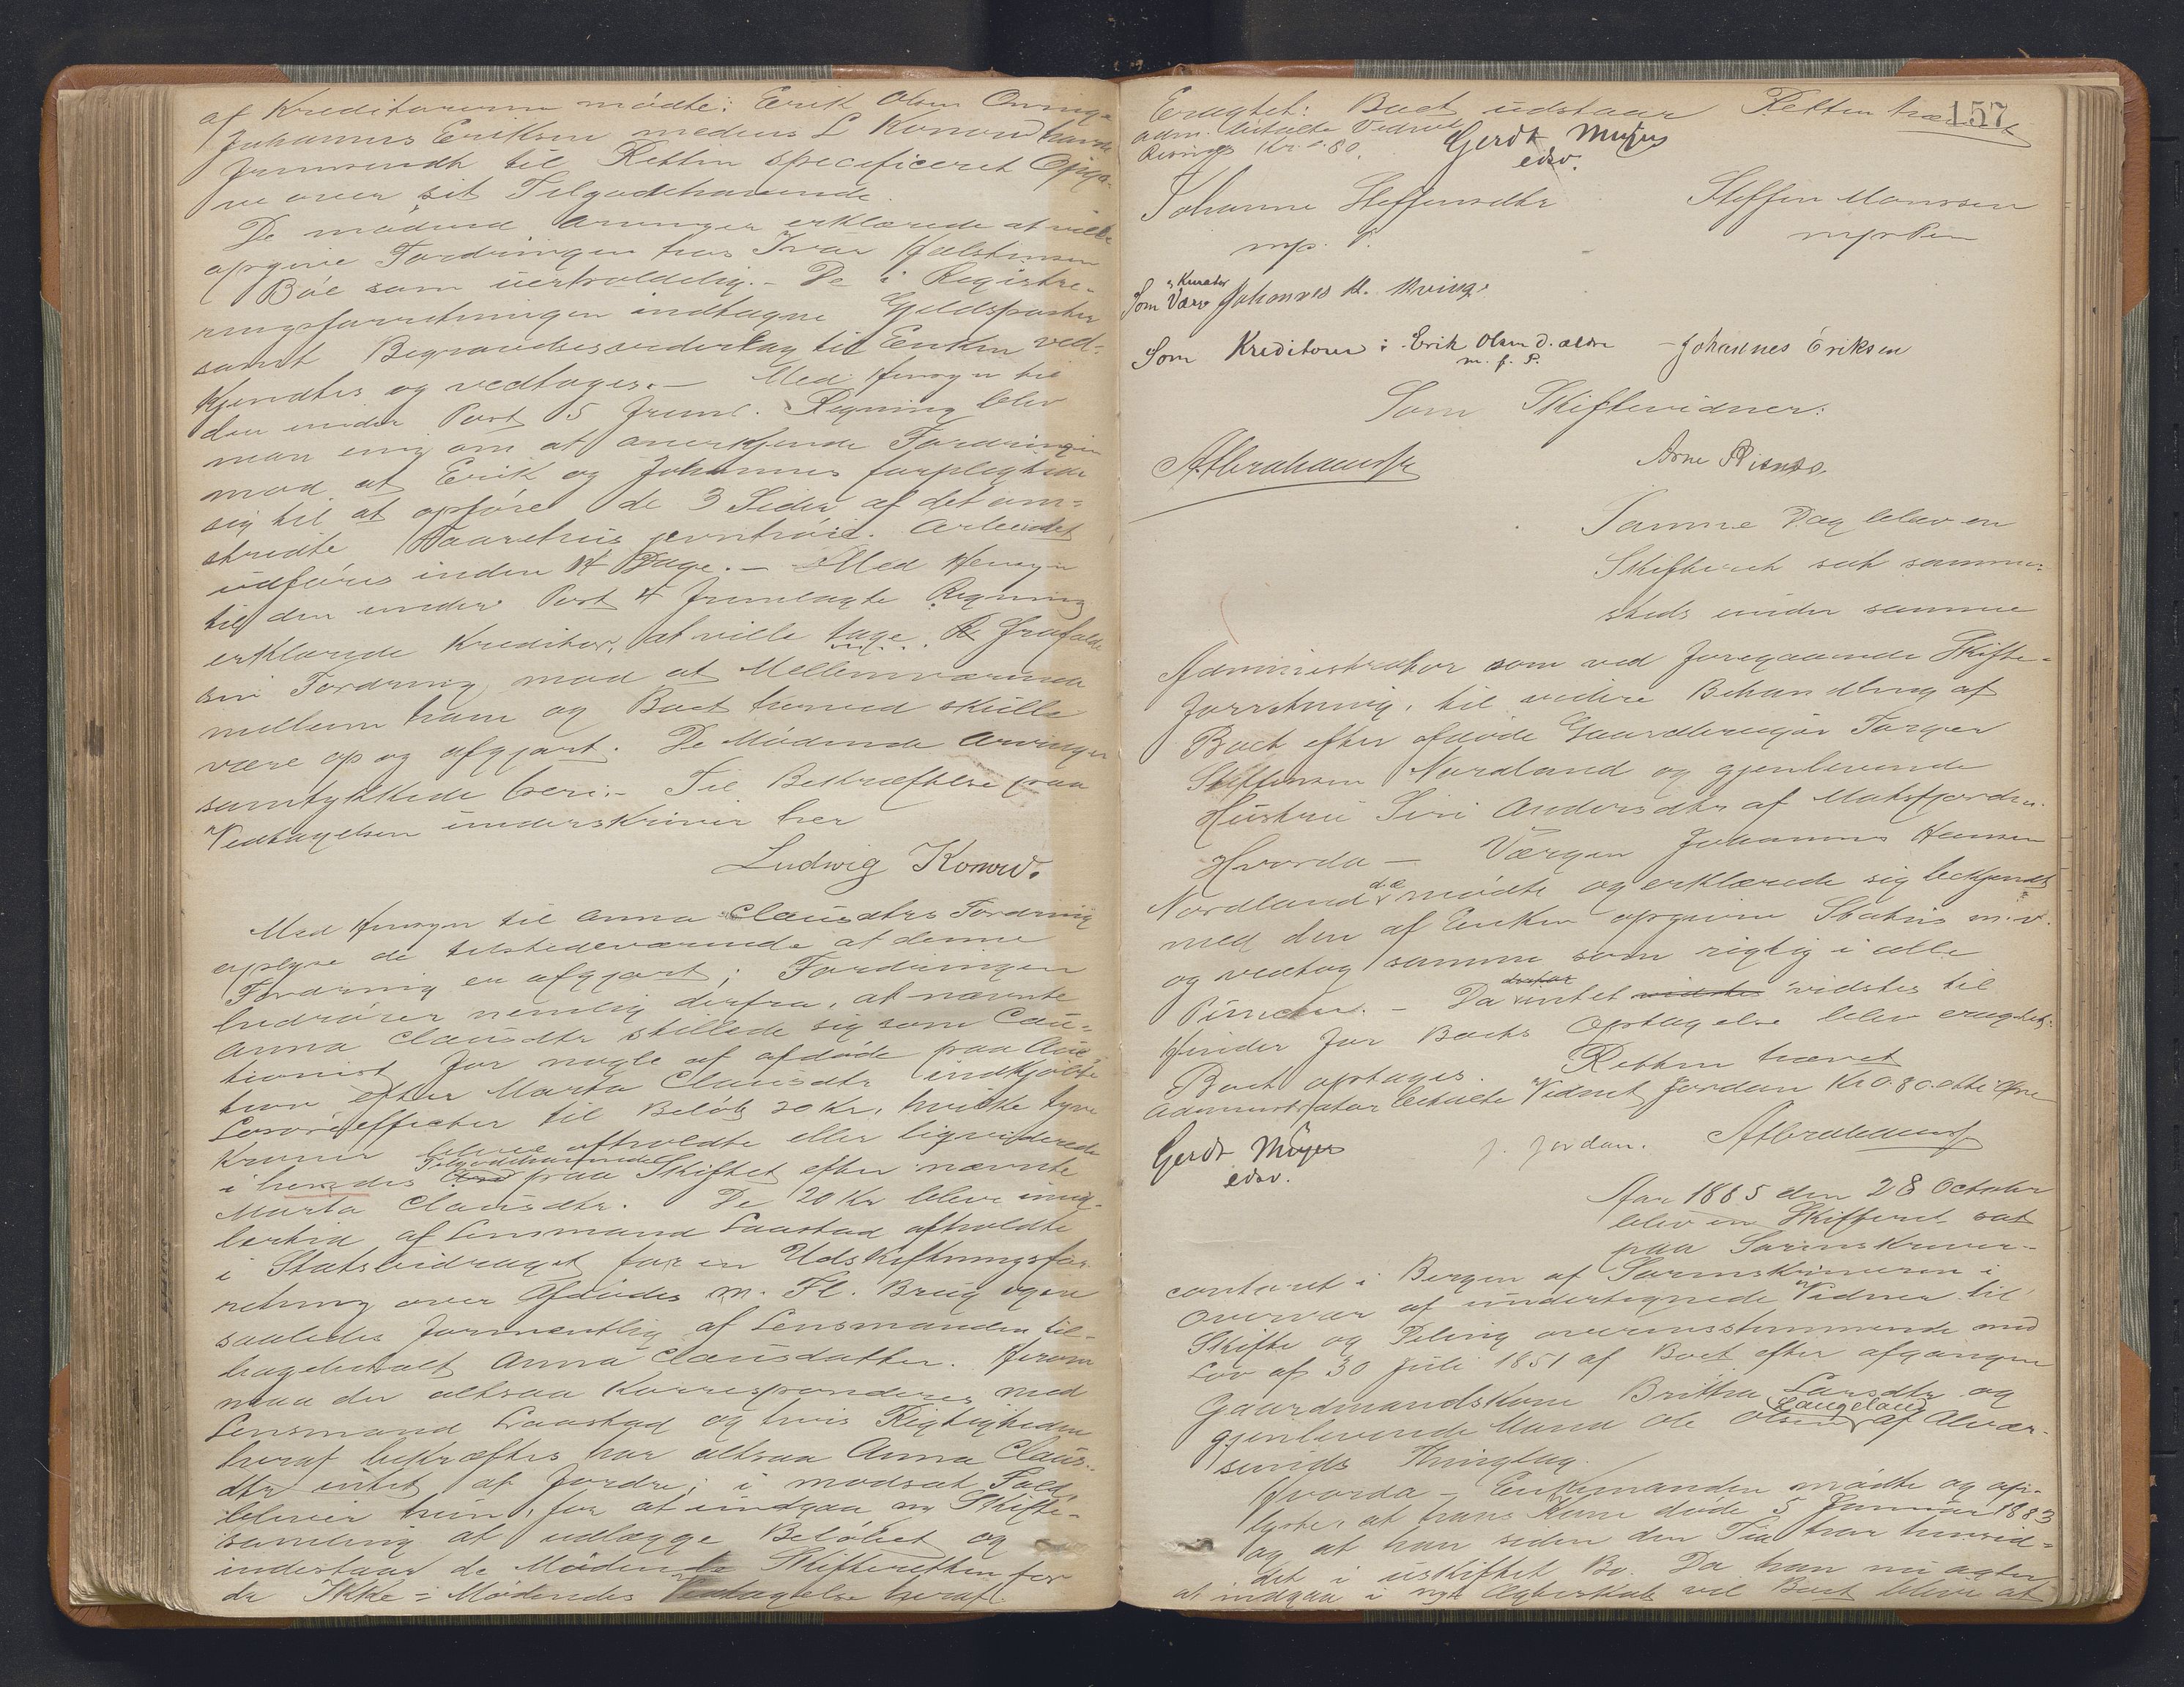 af Kreditorerne mødte: Erik Olsen
Johannes Eriksen medens L Konow havde
fremsendt til Retten specificeret Opga-
ve over sit Tilgodehavende.
De mødende Arvinger erklærede at ville
opgive Fordringen hos Ivar
Bøe som uerholdelig. – De i Registre-
ringsforretningen indtagne Gjeldsposter
samt Begravelsesvederlag til Enken ved-
kjendtes og vedtoges. – Med Hensyn til
den under Post 5 freml. Regning blev
man enig om at anerkjende Fordringen
mod at Erik og Johannes forpligtede
sig til at opføre de 3 Sider af det om-
stridte. Arbeidet
udføres inden 14 Dage. – Med Hensyn
til den under Post 4 fremlagte Regning
erklærede Kreditor, at ville frafalde
sin Fordring mod at Mellemværende
mellem ham og Boet hermed skulle
være op og afgjort. De Mødende Arvinger
samtykkede heri. – Til Bekræftelse paa
Vedtagelsen underskriver her
Ludwig Konow.
Med Hensyn til Anna Clausdtrs Fordring
oplyse de tilstedeværende at denne
Fordring er afgjort; Fordringen
hidrører nemlig derfra, at nævnte
Anna Clausdtr stillede sig som Cau-
tionist for nogle af afdøde paa Auc-
tion efter Marta Clausdtr indkjøbte
Løsøreeffecter til Beløb 20 Kr, hvilke tyve
Kroner bleve afholdte eller ligviderede
i hendes Tilgodehavende paa Skiftet efter nævnte
Marta Clausdtr. De 20 Kr bleve imid-
lertid af Lensmand Laastad afholdte
i Statsbidraget for en Udskiftningsfor-
retning over Afdødes m. Fl. Brug og ere
saaledes formentlig af Lensmanden til-
bagebetalt Anna Clausdatter. Herom
maa der altsaa korresponderes med
Lensmand Laastad og hvis Rigtigheden
heraf bekræftes har altsaa Anna Claus-
dtr intet at fordre; i modsat Fald
bliver hun, for at undgaa ny Skifte-
samling at udlægge Beløbet og
indestaar de Mødende Skifteretten for
de Ikke-Mødendes Vedtagelse heraf.
157
Eragtet: Boet udstaar Retten hævet
adm. betalte Vidnet
Risnes Kr. 0.80.
Gerdt Meyer
edsv.
Johanne Steffensdtr
mp. P.
Steffen Monssen
m p Pen
Som Værge & Kurator Johannes H.
Som Kreditorer: Erik Olsen d. ældre – Johannes Eriksen
m. f. P.
Som Skiftevidner:
Arne Risnes
Samme Dag blev en
Skifteret sat samme-
steds under samme
Administrator som ved foregaaende Skifte-
forretning, til videre Behandling af
Boet efter afdøde Gaardbruger Torger
Steffensen Nordland og gjenlevende
Hustru Siri Andersdtr af Matsfjorden.
Hvorda – Værgen Johannes Hansen
Nordland d.æ. mødte og erklærede sig bekjendt
med den af Enken opgivne Status m.v.
og vedtog samme som rigtig i alle
Puncter. – Da derfor intet vidstes til
Hinder for Boets Optagelse blev eragtet:
Boet optages. Retten hævet
Administrator betalte Vidnet Jordan Kr 0.80 otti Øre
Gerdt Meyer
edsv.
J. Jordan.
Aar 1885 den 28 October
blev en Skifteret sat
paa Sorenskriver-
contoret i Bergen af Sorenskriveren i
Overvær af undertegnede Vidner til
Skifte og Deling overensstemmende med
Lov af 30 Juli 1851 af Boet efter afgangne
Gaardmandskone Brittha Larsdtr og
gjenlevende Mand Ole Olsen Langeland af Alver-
sunds Thinglag.
Hvorda – Enkemanden mødte og op-
lyste, at hans Kone døde 5 Januar 1883
og at han siden den Tid har hensid-
det i uskiftet Bo. Da han nu agter
at indgaa i nyt Ægteskab vil Boet blive at